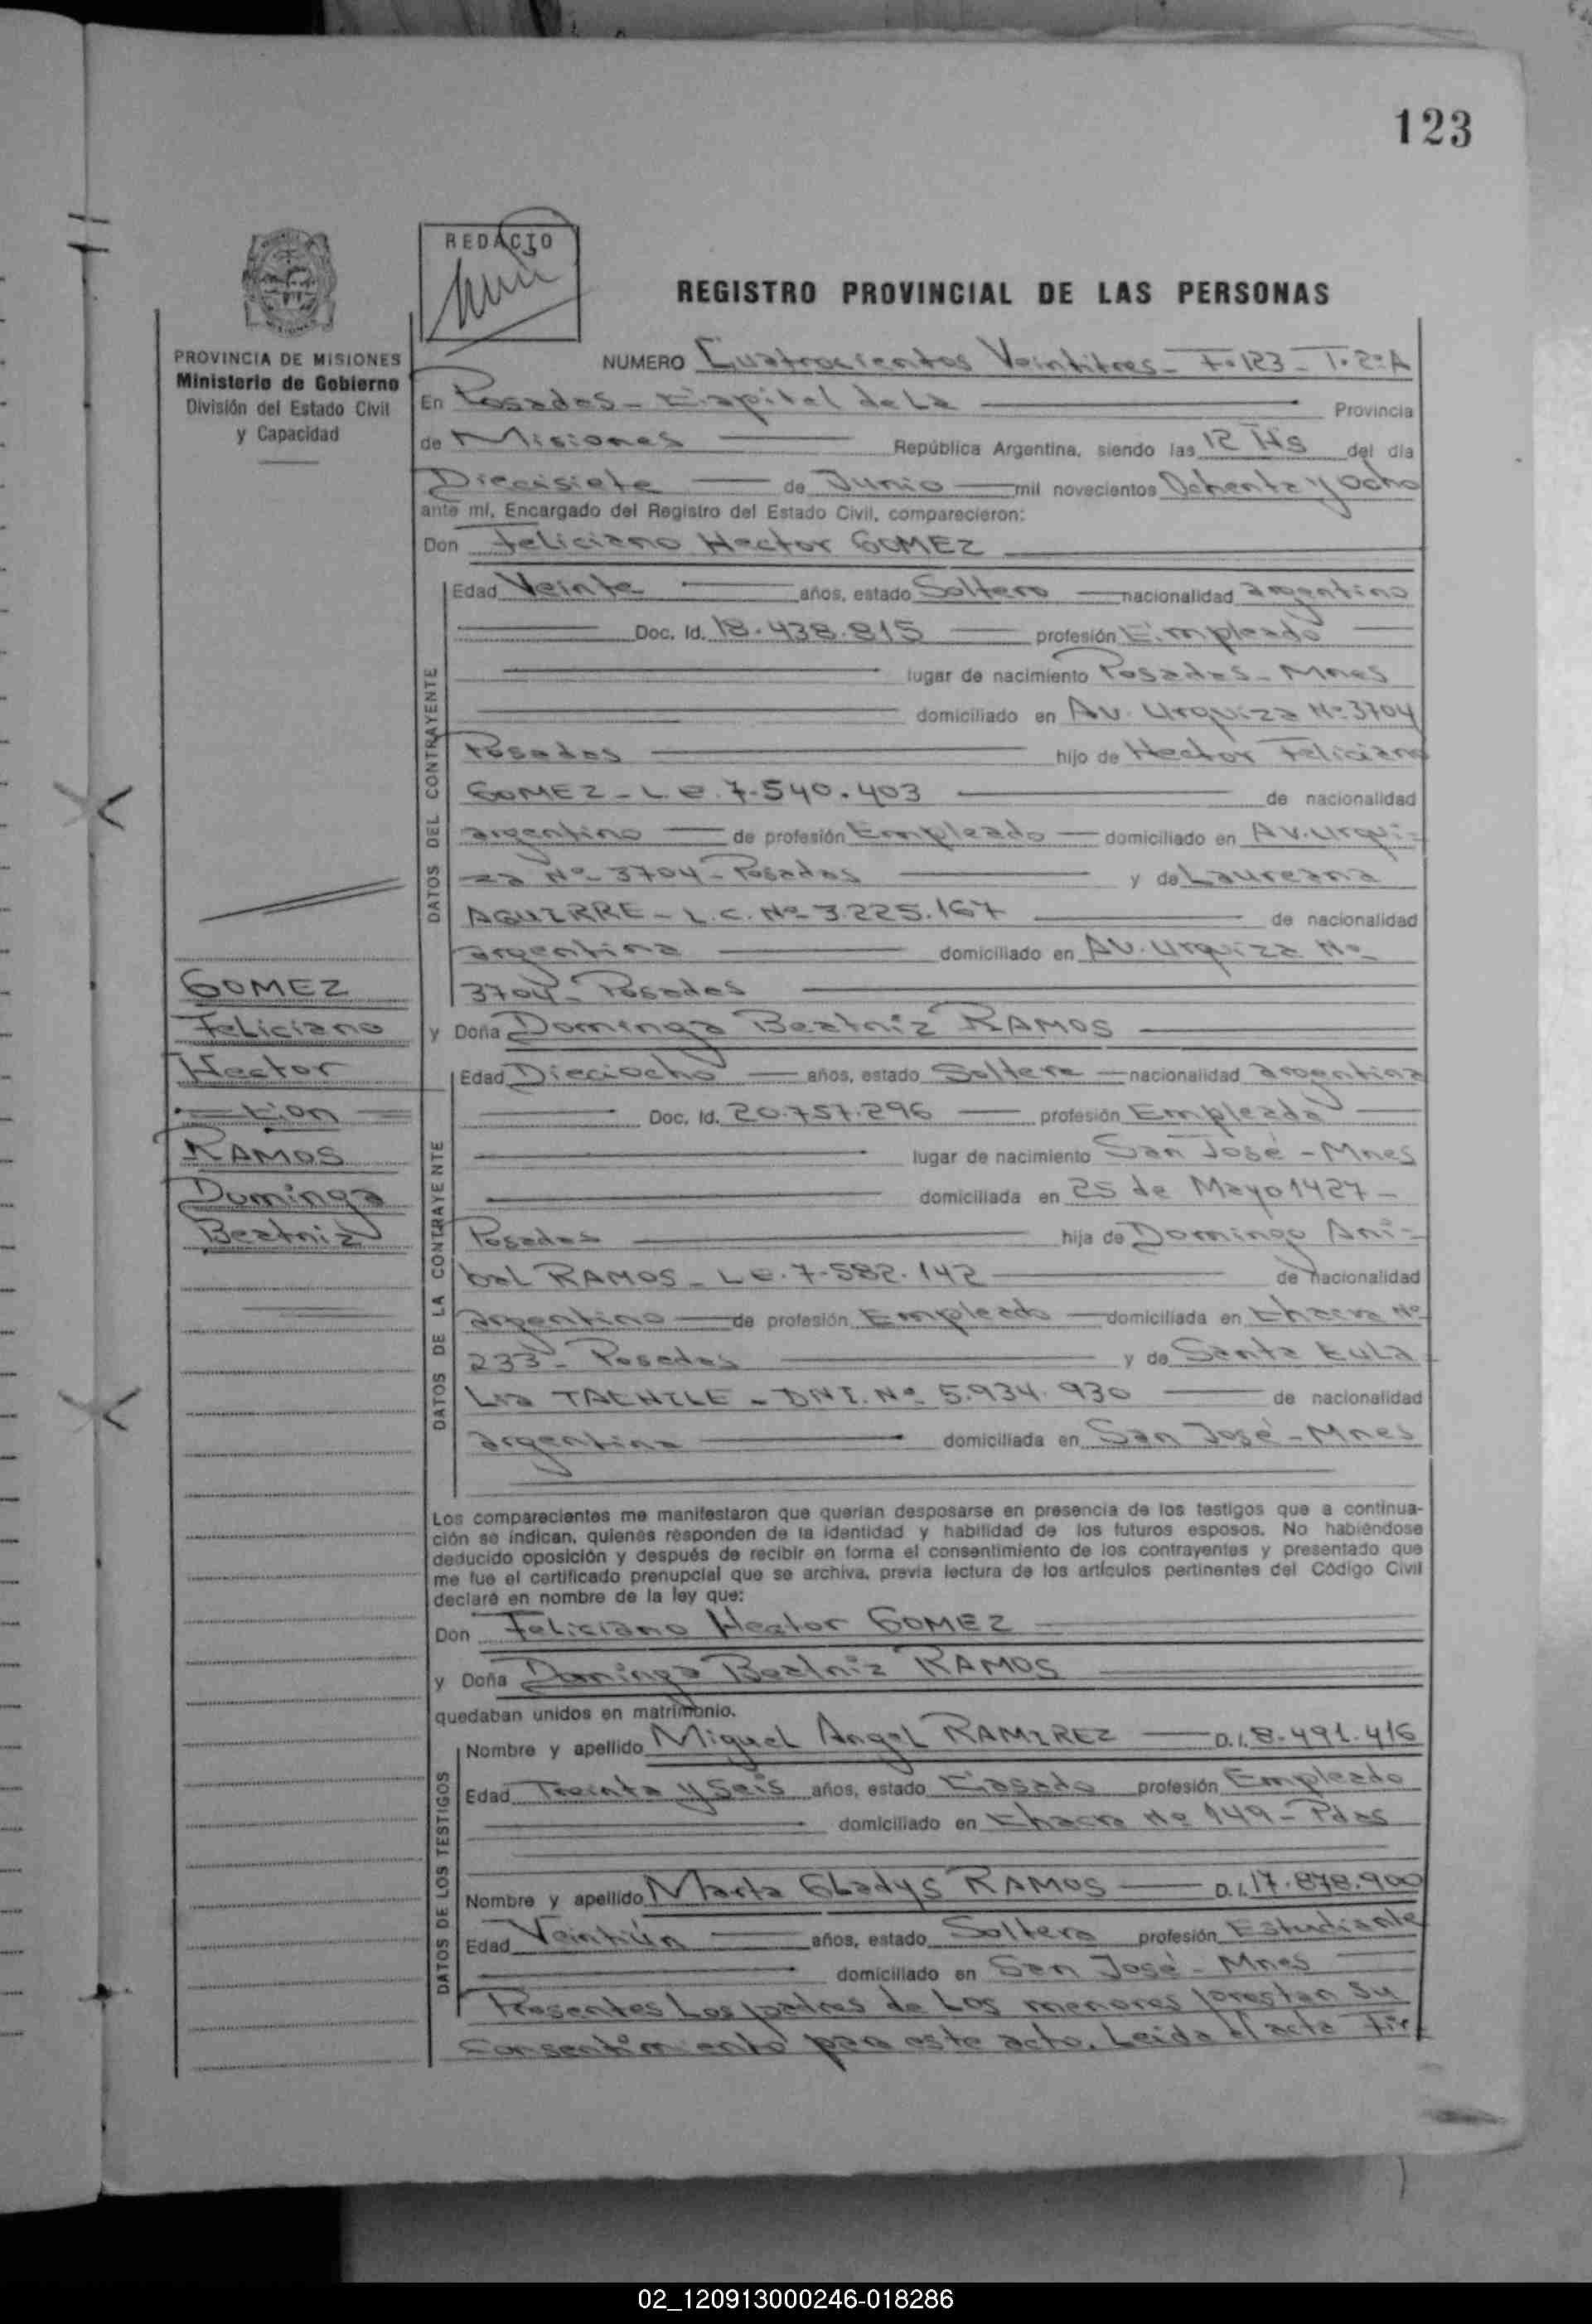 123
REDACTO
REGISTRO PROVINCIAL DE LAS PERSONAS
PROVINCIA DE MISIONES
Ministerio de Gobierno
División del Estado Civil
y Capacidad
NUMERO Cuatrocientos Veintitres - F° 123 - T° 2° A
En Posadas - Capital de La Provincia
de Misiones República Argentina, siendo las 12 Hs del día
Diecisiete de Junio mil novecientos Ochenta y Ocho
ante mí, Encargado del Registro del Estado Civil, comparecieron:
Don Feliciano Hector GOMEZ
DATOS DEL CONTRAYENTE
Edad Veinte años, estado Soltero nacionalidad argentino
Doc. Id. 18.438.815 profesión Empleado
lugar de nacimiento Posadas - Mnes
domiciliado en Av. Urquiza Nº 3704
Posadas hijo de Hector Feliciano
GOMEZ - L.E. 7.540.403 de nacionalidad
argentino de profesión Empleado domiciliado en Av. Urqui=
za Nº 3704 - Posadas y de Laureana
AGUIRRE - L.C. Nº 3.225.167 de nacionalidad
argentina domiciliado en Av. Urquiza Nº
3704 - Posadas
GOMEZ
Feliciano
Hector
= Con =
RAMOS
Dominga
Beatriz
y Doña Dominga Beatriz RAMOS
DATOS DE LA CONTRAYENTE
Edad Dieciocho años, estado Soltera nacionalidad argentina
Doc. Id. 20.757.296 profesión Empleada
lugar de nacimiento San José - Mnes
domiciliada en 25 de Mayo 1427 -
Posadas hija de Domingo Ani=
bal RAMOS - L.E. 7.582.142 de nacionalidad
argentino de profesión Empleado domiciliada en Chacra Nº
233 - Posadas y de Santa Eula=
Lia TACHILE - DNI. Nº 5.934.930 de nacionalidad
argentina domiciliada en San José - Mnes
Los comparecientes me manifestaron que querían desposarse en presencia de los testigos que a continua-
ción se indican, quienes responden de la identidad y habilidad de los futuros esposos. No habiéndose
deducido oposición y después de recibir en forma el consentimiento de los contrayentes y presentado que
me fue el certificado prenupcial que se archiva, previa lectura de los artículos pertinentes del Código Civil
declaré en nombre de la ley que:
Don Feliciano Hector GOMEZ
y Doña Dominga Beatriz RAMOS
quedaban unidos en matrimonio.
DATOS DE LOS TESTIGOS
Nombre y apellido Miguel Angel RAMIREZ D.I. 8.491.416
Edad Treinta y Seis años, estado Casado profesión Empleado
domiciliado en Chacra Nº 149 - Pdas
Nombre y apellido Marta Gladys RAMOS D.I. 17.878.900
Edad Veintiún años, estado Soltera profesión Estudiante
domiciliado en San José - Mnes
Presentes Los padres de Los menores prestan su
Consentimiento para este acto. Leida el acta Fir=
02_120913000246-018286